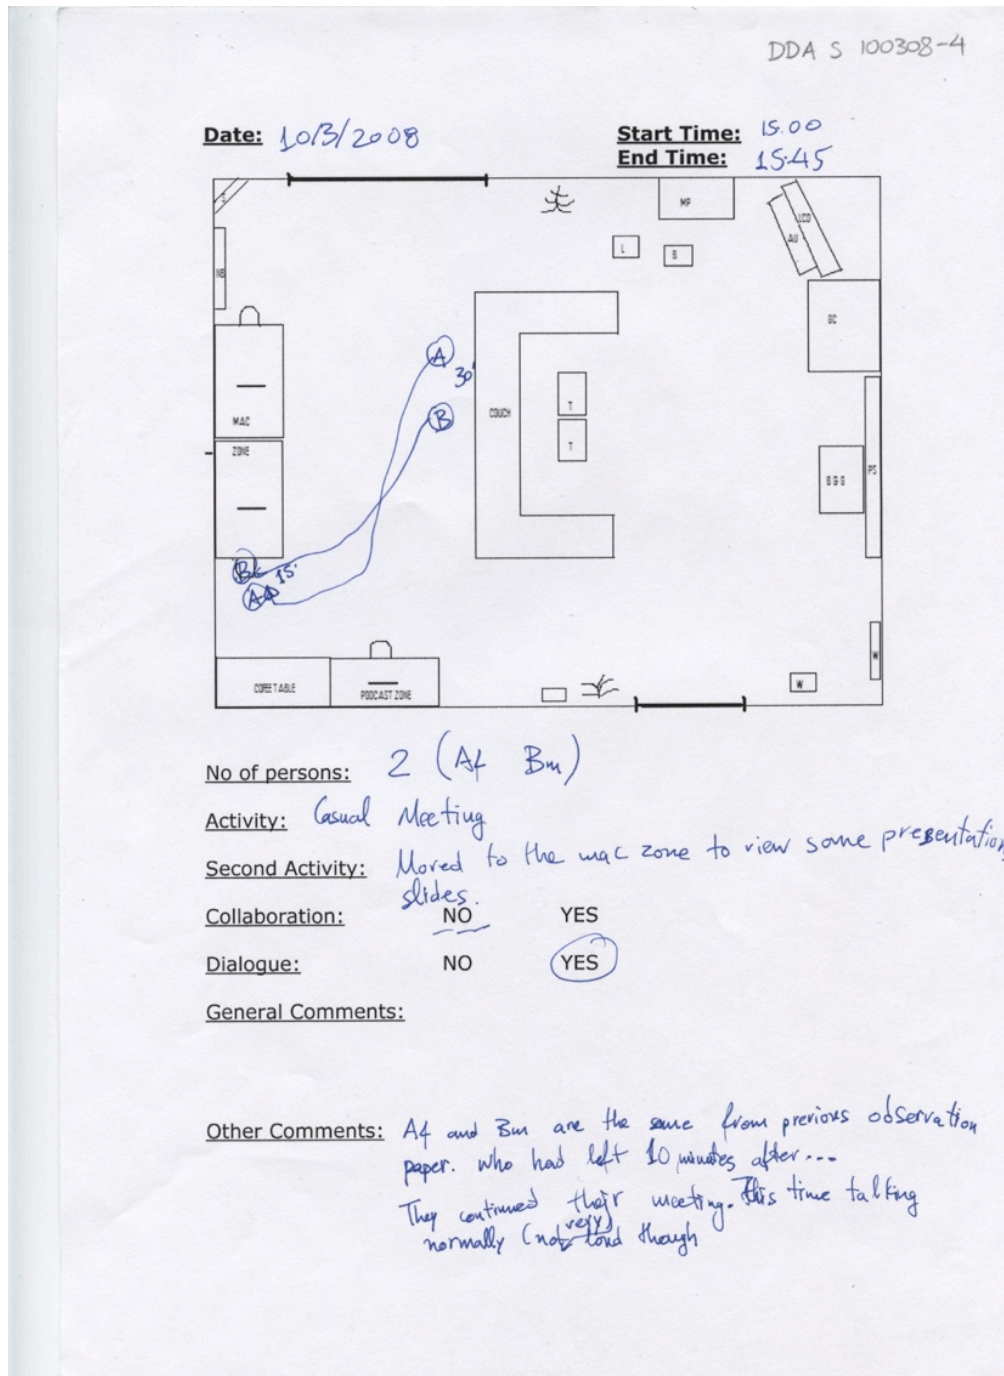 DDA S 100308-4
Date: 10/3/2008
Start Time: 15.00
End Time: 15.45
MP
LCD
AU
L
B
NB
BC
A
30'
MAC
B
COUCH
T
T
ZONE
BGG
PS
B
15'
A
W
COFEE TABLE
PODCAST ZONE
W
No of persons: 2 (Af Bm)
Activity: Casual Meeting
Second Activity: Moved to the mac zone to view some presentation
slides.
Collaboration: NO YES
Dialogue: NO YES
General Comments:
Other Comments: Af and Bm are the same from previous observation
paper. who had left 10 minutes after...
They continued their meeting. This time talking
normally (not very) loud though